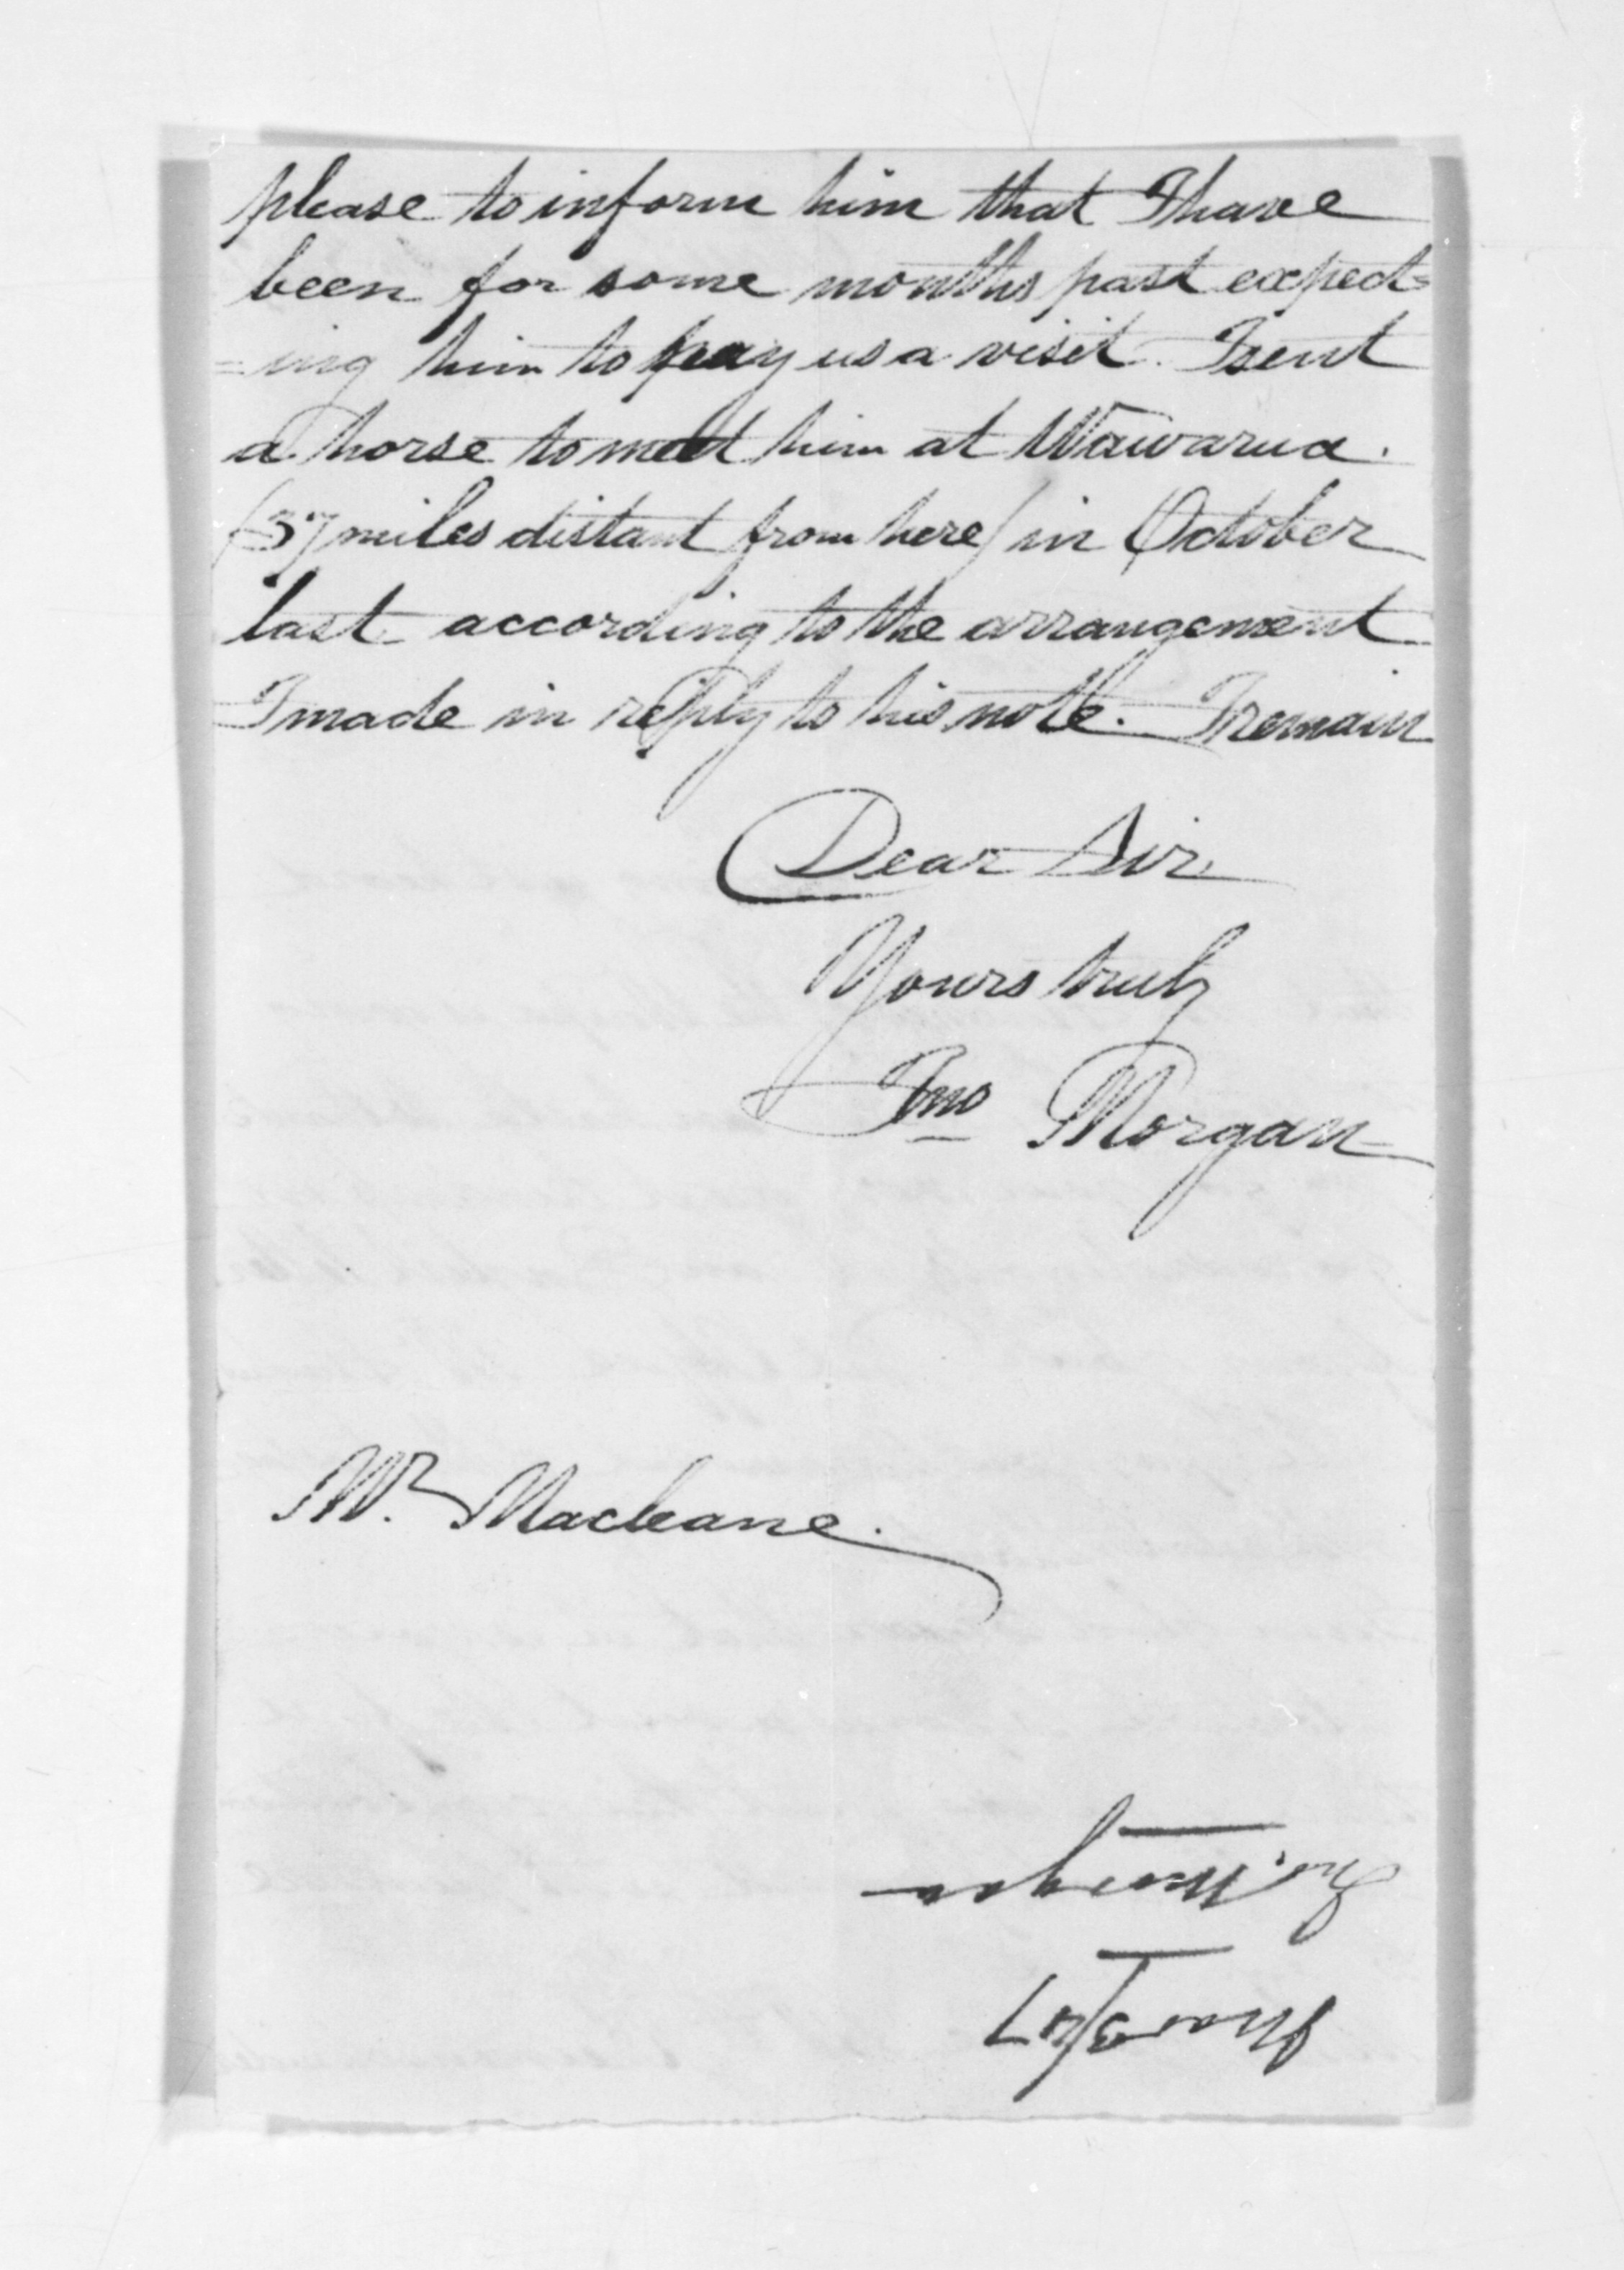 please to inform him that I have
been for some months past expect=
=ing him to pay us a visit. I sent
a horse to meet him at Wawarua.
(37 miles distant from here) in October
last according to the arrangement
I made in reply to his note. I remain
Dear Sir
Yours truly
Jno Morgan
Mr. Macleane.
Jno. Morgan
Mar 3/47